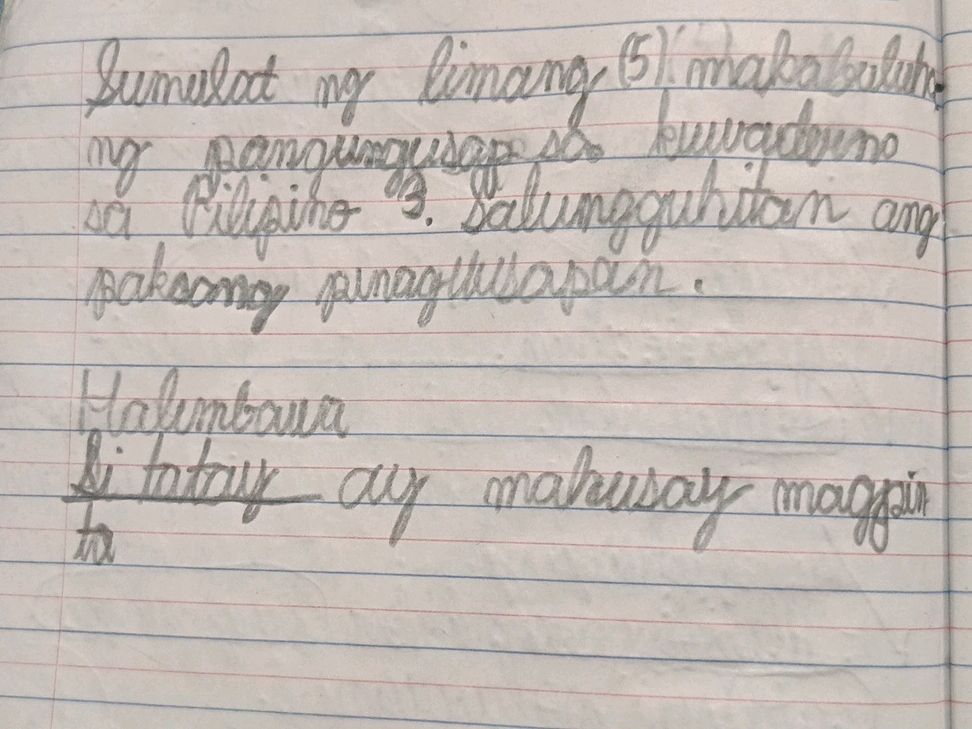 Sumulat ng limang (5) makabuluha
ng pangungusap sa kuwaderno
sa Pilipino 3. Salungguhitan ang
paksang pinaguusapan.
Halimbawa
Si tatay ay mahusay magpin
ta